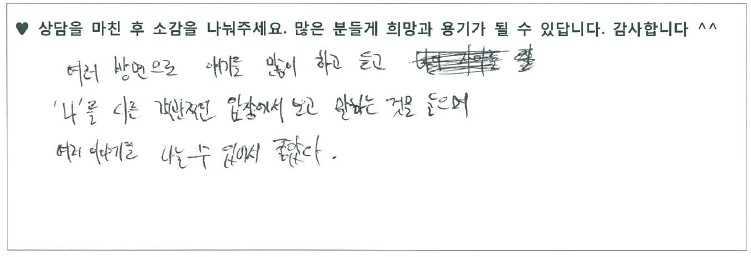 ♥ 상담을 마친 후 소감을 나눠주세요. 많은 분들게 희망과 용기가 될 수 있답니다. 감사합니다 ^^
여러 방면으로 얘기를 많이 하고 듣고
'나'를 다른 객관적인 입장에서 보고 말하는 것을 들으며
여러 이야기를 나눌 수 있어서 좋았다.